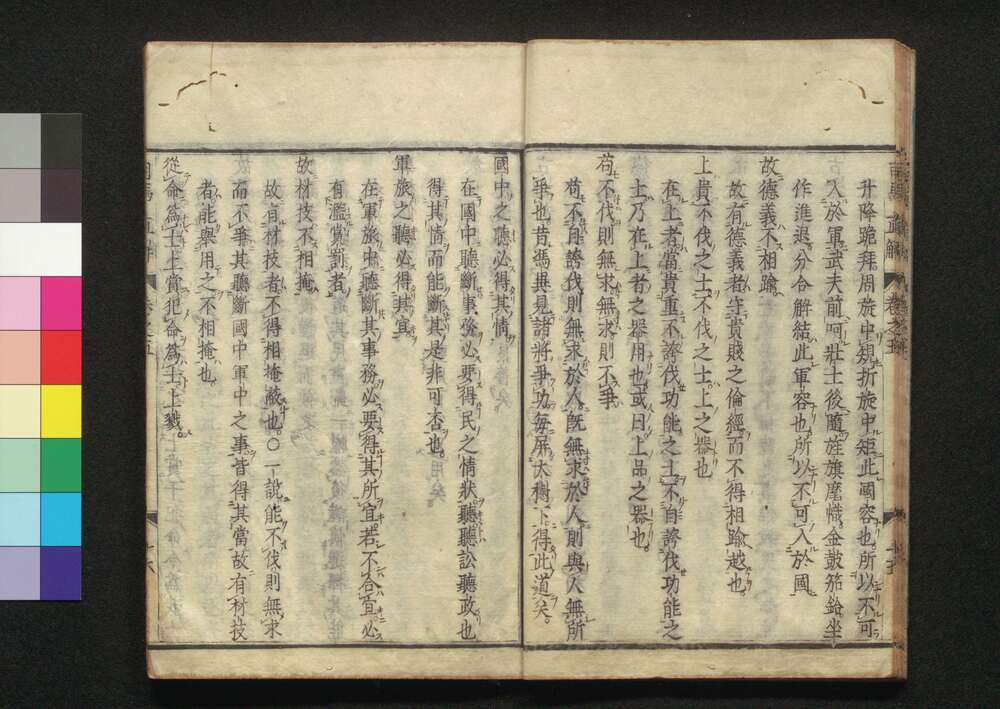 升降跪拜周旋中規折旋中矩此國容也所以不可
入於軍武夫前呵壯士後隨旌旗麾幟金鼓笳鈴坐
作進退分合解結此軍容也所以不可入於國
故德義不相踰
故有德義者守貴賤之倫經而不得相踰越也
上貴不伐之士不伐之士上之器也
在上者當貴重不誇伐功能之士不自誇伐功能之
士乃在上者之器用也或曰上品之器也
苟不伐則無求無求則不爭
苟不自誇伐則無求於人旣無求於人則與人無所
爭也昔馮異見諸將爭功每屏大樹下得此道矣
國中之聽必得其情
在國中聽斷事務必要得民之情狀聽聽訟聽政也
得其情而能斷其是非可否也
軍旅之聽必得其宜
在軍旅中聽斷其事務必要得其所宜若不合宜必
有濫賞罰者
故材技不相掩
故有材技者不得相掩蔽也○一說能不伐則無求
而不爭其聽斷國中軍中之事皆得其當故有材技
者能舉用之不相掩也
從命爲士上賞犯命爲士上戮